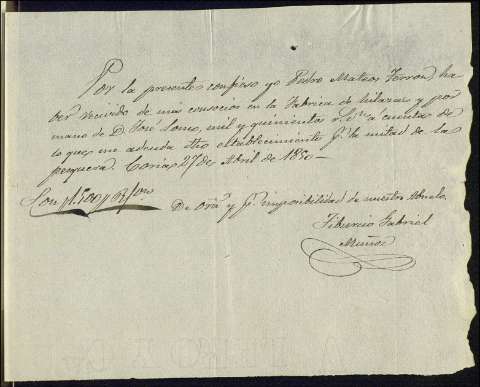 Por la presente confieso yo Pedro Mateos Terron ha
ber recivido de mis consocios en la Fabrica de hilazas y por
mano de D. José mil y quinientos r.s v.n a cuenta de
lo que me adeuda dho establecimiento p.r la mitad de la
pesquera. Coria 27 de Abril de 1850
Son 1500 r.s v.n
De orn. y p.r imposibilidad de nuestro Abuelo.
Tiburcio Gabriel
Muñoz